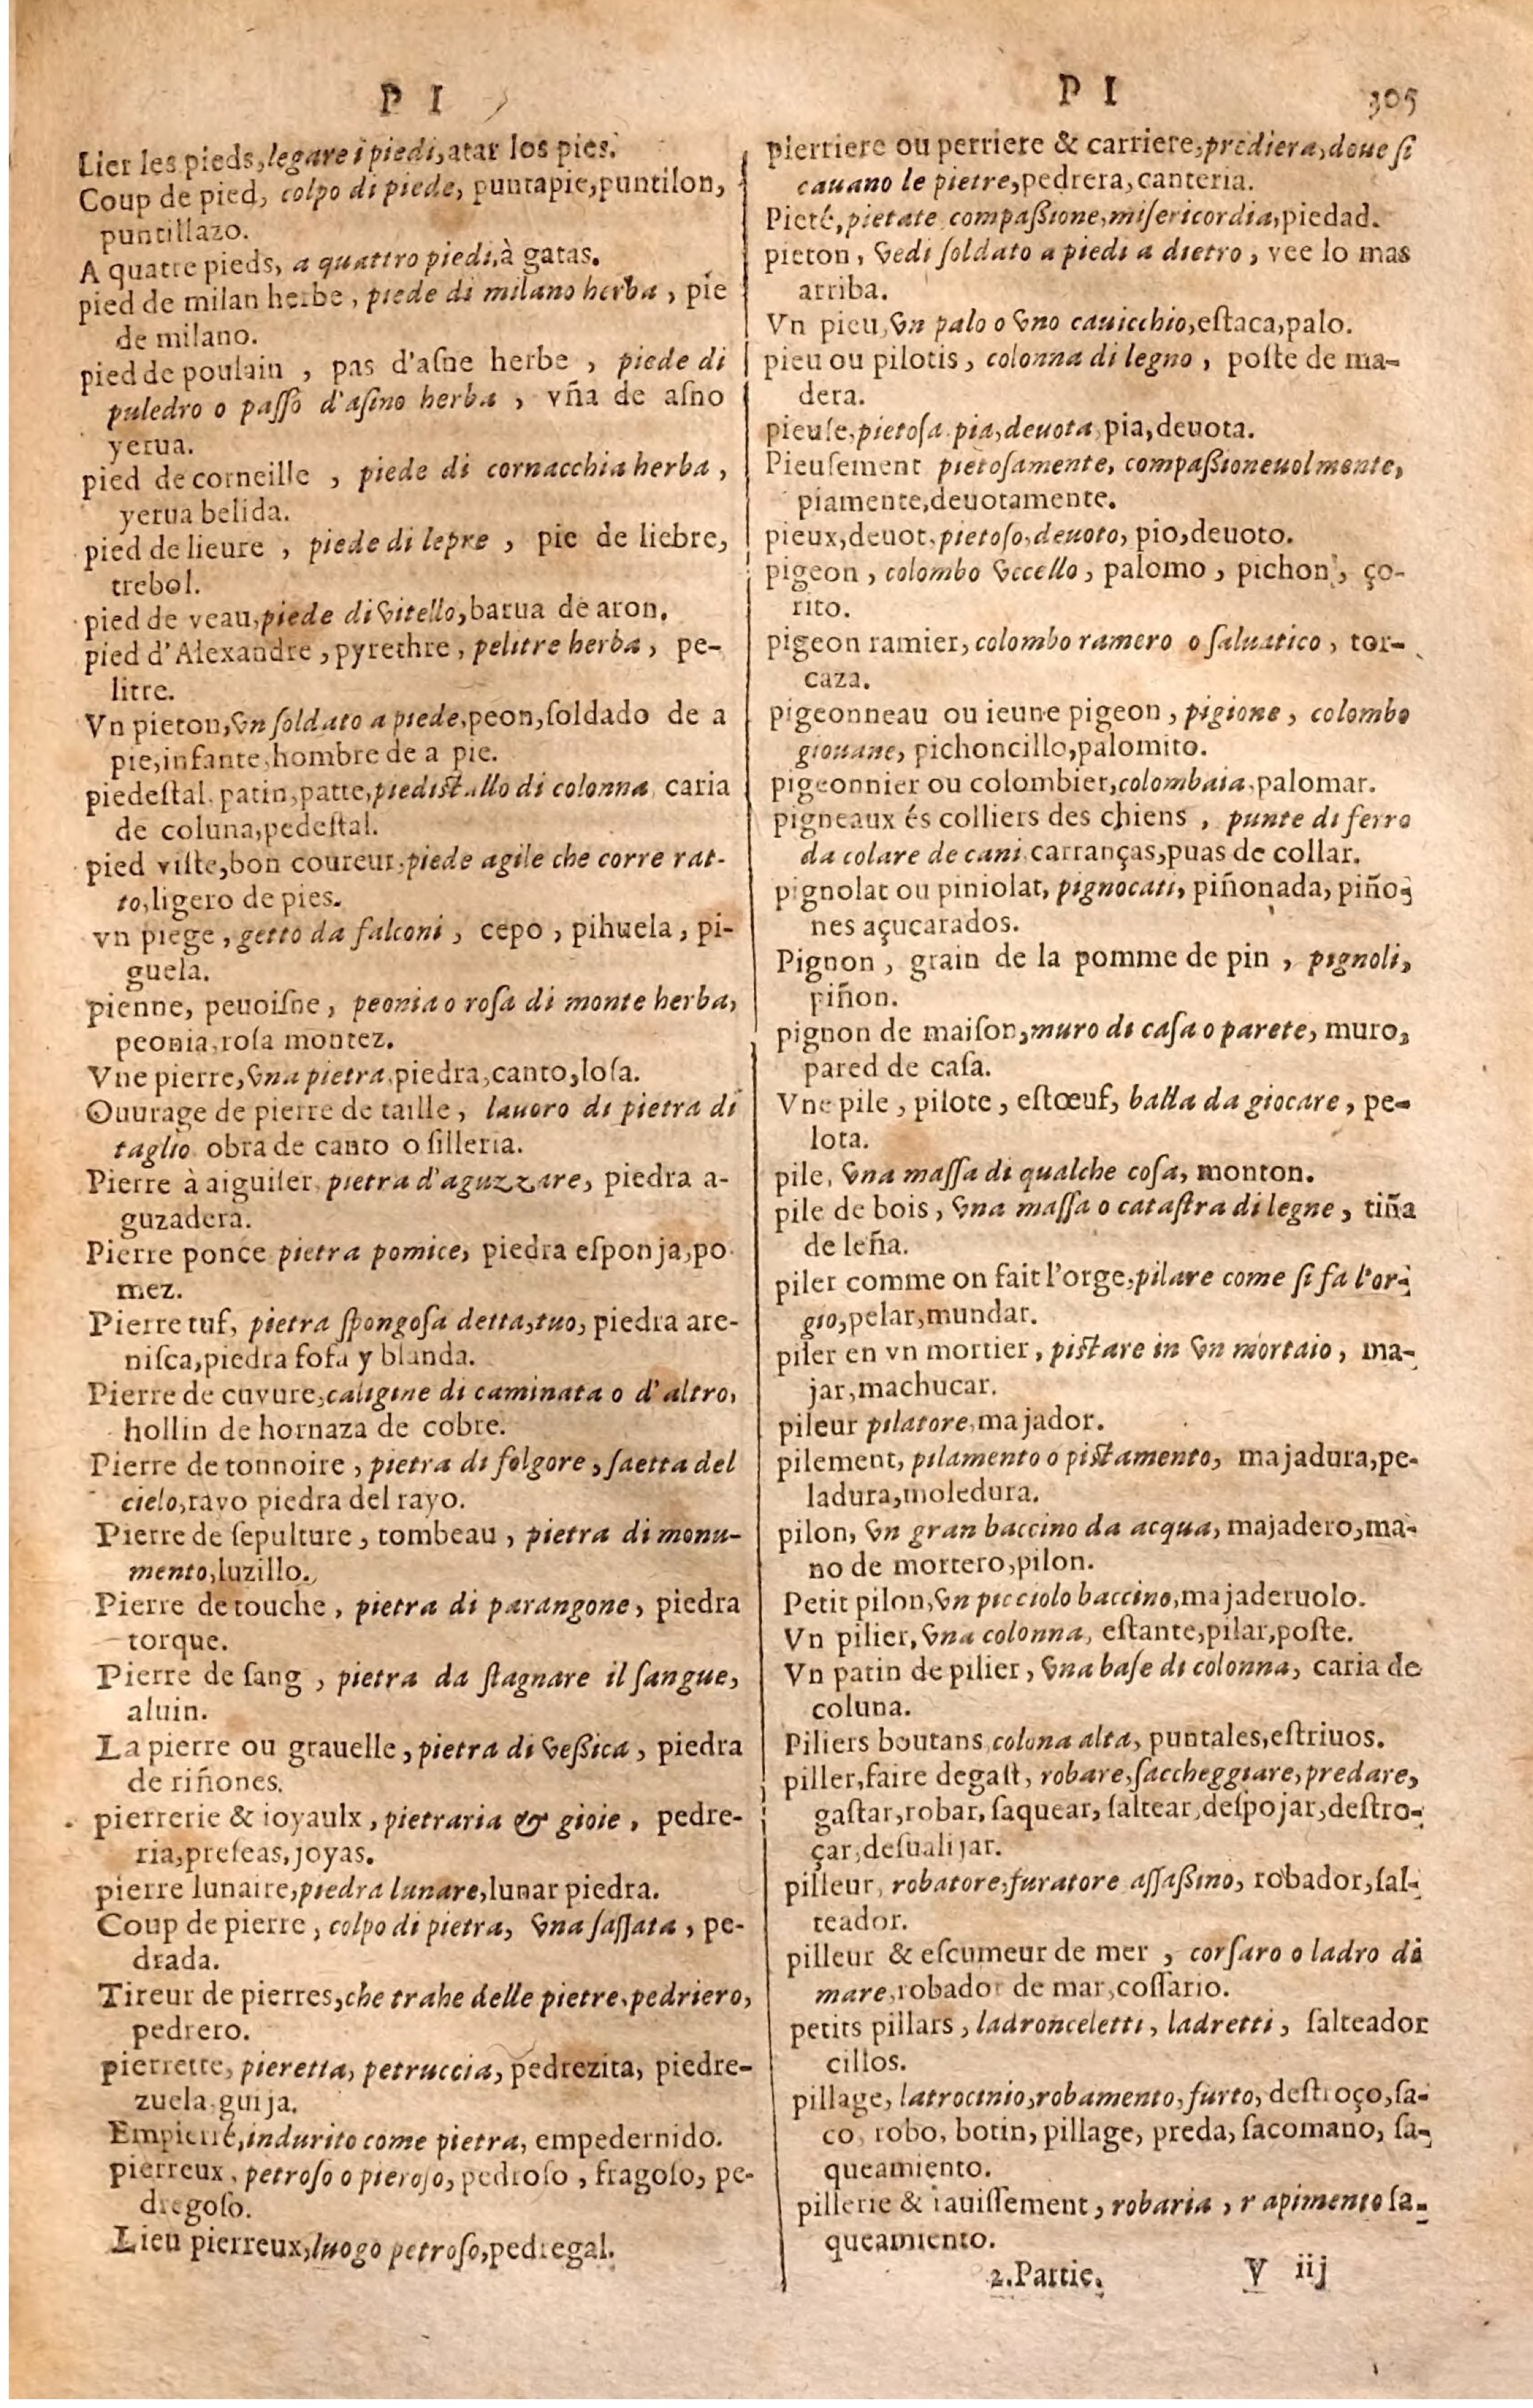 P I
Lier les pieds, legare i piedi, atar los pies.
Coup de pied, colpo di piede, puntapie, puntilon,
puntillazo.
A quatre pieds, a quattro piedi, à gatas.
pied de milan herbe, piede di milano herba, pie
de milano.
pied de poulain, pas d'aſne herbe, piede di
puledro o paſſo d'aſino herba, vña de aſno
yerua.
pied de corneille, piede di cornacchia herba,
yerua belida.
pied de lieure, piede di lepre, pie de liebre,
trebol.
pied de veau, piede di vitello, barua de aron.
pied d'Alexandre, pyrethre, pelitre herba, pe-
litre.
Vn pieton, vn ſoldato a piede, peon, ſoldado de a
pie, infante, hombre de a pie.
piedeſtal, patin, patte, piediſtallo di colonna, caria
de coluna, pedeſtal.
pied viſte, bon coureur, piede agile che corre rat-
to, ligero de pies.
vn piege, getto da falconi, cepo, pihuela, pi-
guela.
pienne, peuoiſne, peonia o roſa di monte herba,
peonia, roſa montez.
Vne pierre, vna pietra, piedra, canto, loſa.
Ouurage de pierre de taille, lauoro di pietra di
taglio, obra de canto o ſilleria.
Pierre à aiguiſer, pietra d'aguzzare, piedra a-
guzadera.
Pierre ponce pietra pomice, piedra eſponja, po
mez.
Pierre tuf, pietra ſpongoſa detta, tuo, piedra are-
niſca, piedra fofa y blanda.
Pierre de cuvure, caligine di caminata o d'altro,
hollin de hornaza de cobre.
Pierre de tonnoire, pietra di folgore, ſaetta del
cielo, rayo piedra del rayo.
Pierre de ſepulture, tombeau, pietra di monu-
mento, luzillo.
Pierre de touche, pietra di parangone, piedra
torque.
Pierre de ſang, pietra da ſtagnare il ſangue,
aluin.
La pierre ou grauelle, pietra di veßica, piedra
de riñones.
pierrerie & ioyaulx, pietraria & gioie, pedre-
ria, preſeas, joyas.
pierre lunaire, piedra lunare, lunar piedra.
Coup de pierre, colpo di pietra, vna ſaſſata, pe-
drada.
Tireur de pierres, che trahe delle pietre, pedriero,
pedrero.
pierrette, pieretta, petruccia, pedrezita, piedre-
zuela, guija.
Empierré, indurito come pietra, empedernido.
pierreux, petroſo o pieroſo, pedroſo, fragoſo, pe-
dregoſo.
Lieu pierreux, luogo petroſo, pedregal.
P I 305
pierriere ou perriere & carriere, prediera, doue ſi
cauano le pietre, pedrera, canteria.
Pieté, pietate, compaßione, miſericordia, piedad.
pieton, vedi ſoldato a piedi a dietro, vee lo mas
arriba.
Vn pieu, vn palo o vno cauicchio, eſtaca, palo.
pieu ou pilotis, colonna di legno, poſte de ma-
dera.
pieuſe, pietoſa, pia, deuota, pia, deuota.
Pieuſement pietoſamente, compaßioneuolmente,
piamente, deuotamente.
pieux, deuot, pietoſo, deuoto, pio, deuoto.
pigeon, colombo vccello, palomo, pichon, ço-
rito.
pigeon ramier, colombo ramero o ſaluatico, tor-
caza.
pigeonneau ou ieune pigeon, pigione, colombo
giouane, pichoncillo, palomito.
pigeonnier ou colombier, colombaia, palomar.
pigneaux és colliers des chiens, punte di ferro
da colare de cani, carranças, puas de collar.
pignolat ou piniolat, pignocati, piñonada, piño-
nes açucarados.
Pignon, grain de la pomme de pin, pignoli,
piñon.
pignon de maiſon, muro di caſa o parete, muro,
pared de caſa.
Vne pile, pilote, eſtœuf, balla da giocare, pe-
lota.
pile, vna maſſa di qualche coſa, monton.
pile de bois, vna maſſa o cataſtra di legne, tiña
de leña.
piler comme on fait l'orge, pilare come ſi fa l'or-
gio, pelar, mundar.
piler en vn mortier, piſtare in vn mortaio, ma-
jar, machucar.
pileur pilatore, majador.
pilement, pilamento o piſtamento, majadura, pe-
ladura, moledura.
pilon, vn gran baccino da acqua, majadero, ma-
no de mortero, pilon.
Petit pilon, vn picciolo baccino, majaderuolo.
Vn pilier, vna colonna, eſtante, pilar, poſte.
Vn patin de pilier, vna baſe di colonna, caria de
coluna.
Piliers boutans, colona alta, puntales, eſtriuos.
piller, faire degaſt, robare, ſaccheggiare, predare,
gaſtar, robar, ſaquear, ſaltear, deſpojar, deſtro-
çar, deſualijar.
pilleur, robatore, furatore aſſaßino, robador, ſal-
teador.
pilleur & eſcumeur de mer, corſaro o ladro di
mare, robador de mar, coſſario.
petits pillars, ladronceletti, ladretti, ſalteador
cillos.
pillage, latrocinio, robamento, furto, deſtroço, ſa-
co, robo, botin, pillage, preda, ſacomano, ſa-
queamiento.
pillerie & rauiſſement, robaria, rapimento ſa-
queamiento.
2. Partie. V iij